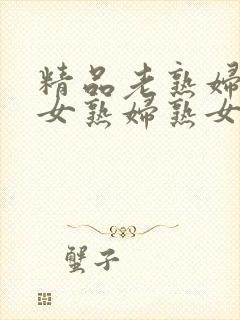 精品老熟妇
女熟妇熟女
蟹子